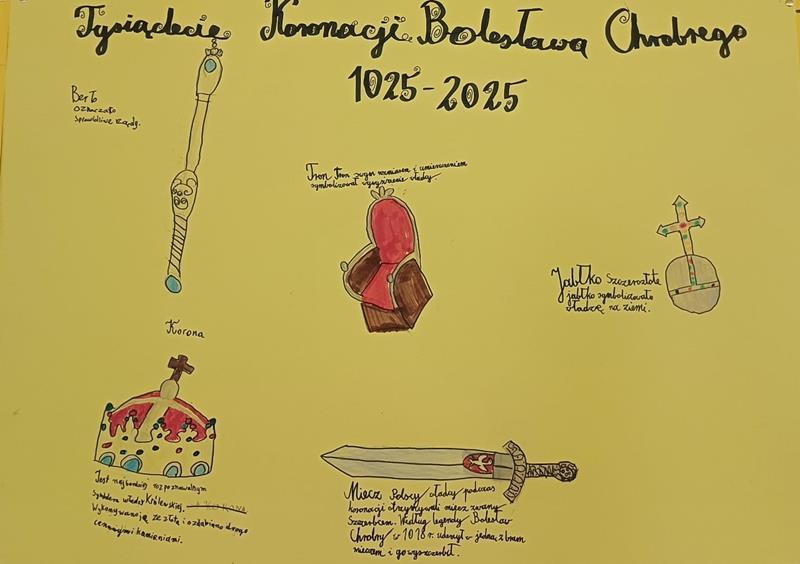 Tysiąclecie Koronacji Bolesława Chrobrego
1025-2025
Berło
oznaczało
sprawiedliwe rządy.
Tron Tron swym rozmiarem i umieszczeniem
symbolizował wywyższenie władcy.
Jabłko Szczerozłote
jabłko symbolizowało
władzę na ziemi.
Korona
Jest najbardziej rozpoznawalnym
symbolem władzy Królewskiej.
Wykonywano ją ze złota i ozdabiano drogo
cennymi kamieniami.
Miecz Polscy władcy podczas
koronacji otrzymywali miecz zwany
Szczerbcem. Według legendy Bolesław
Chrobry w 1018 r. uderzył w jedną z bram
mieczem i go wyszczerbił.